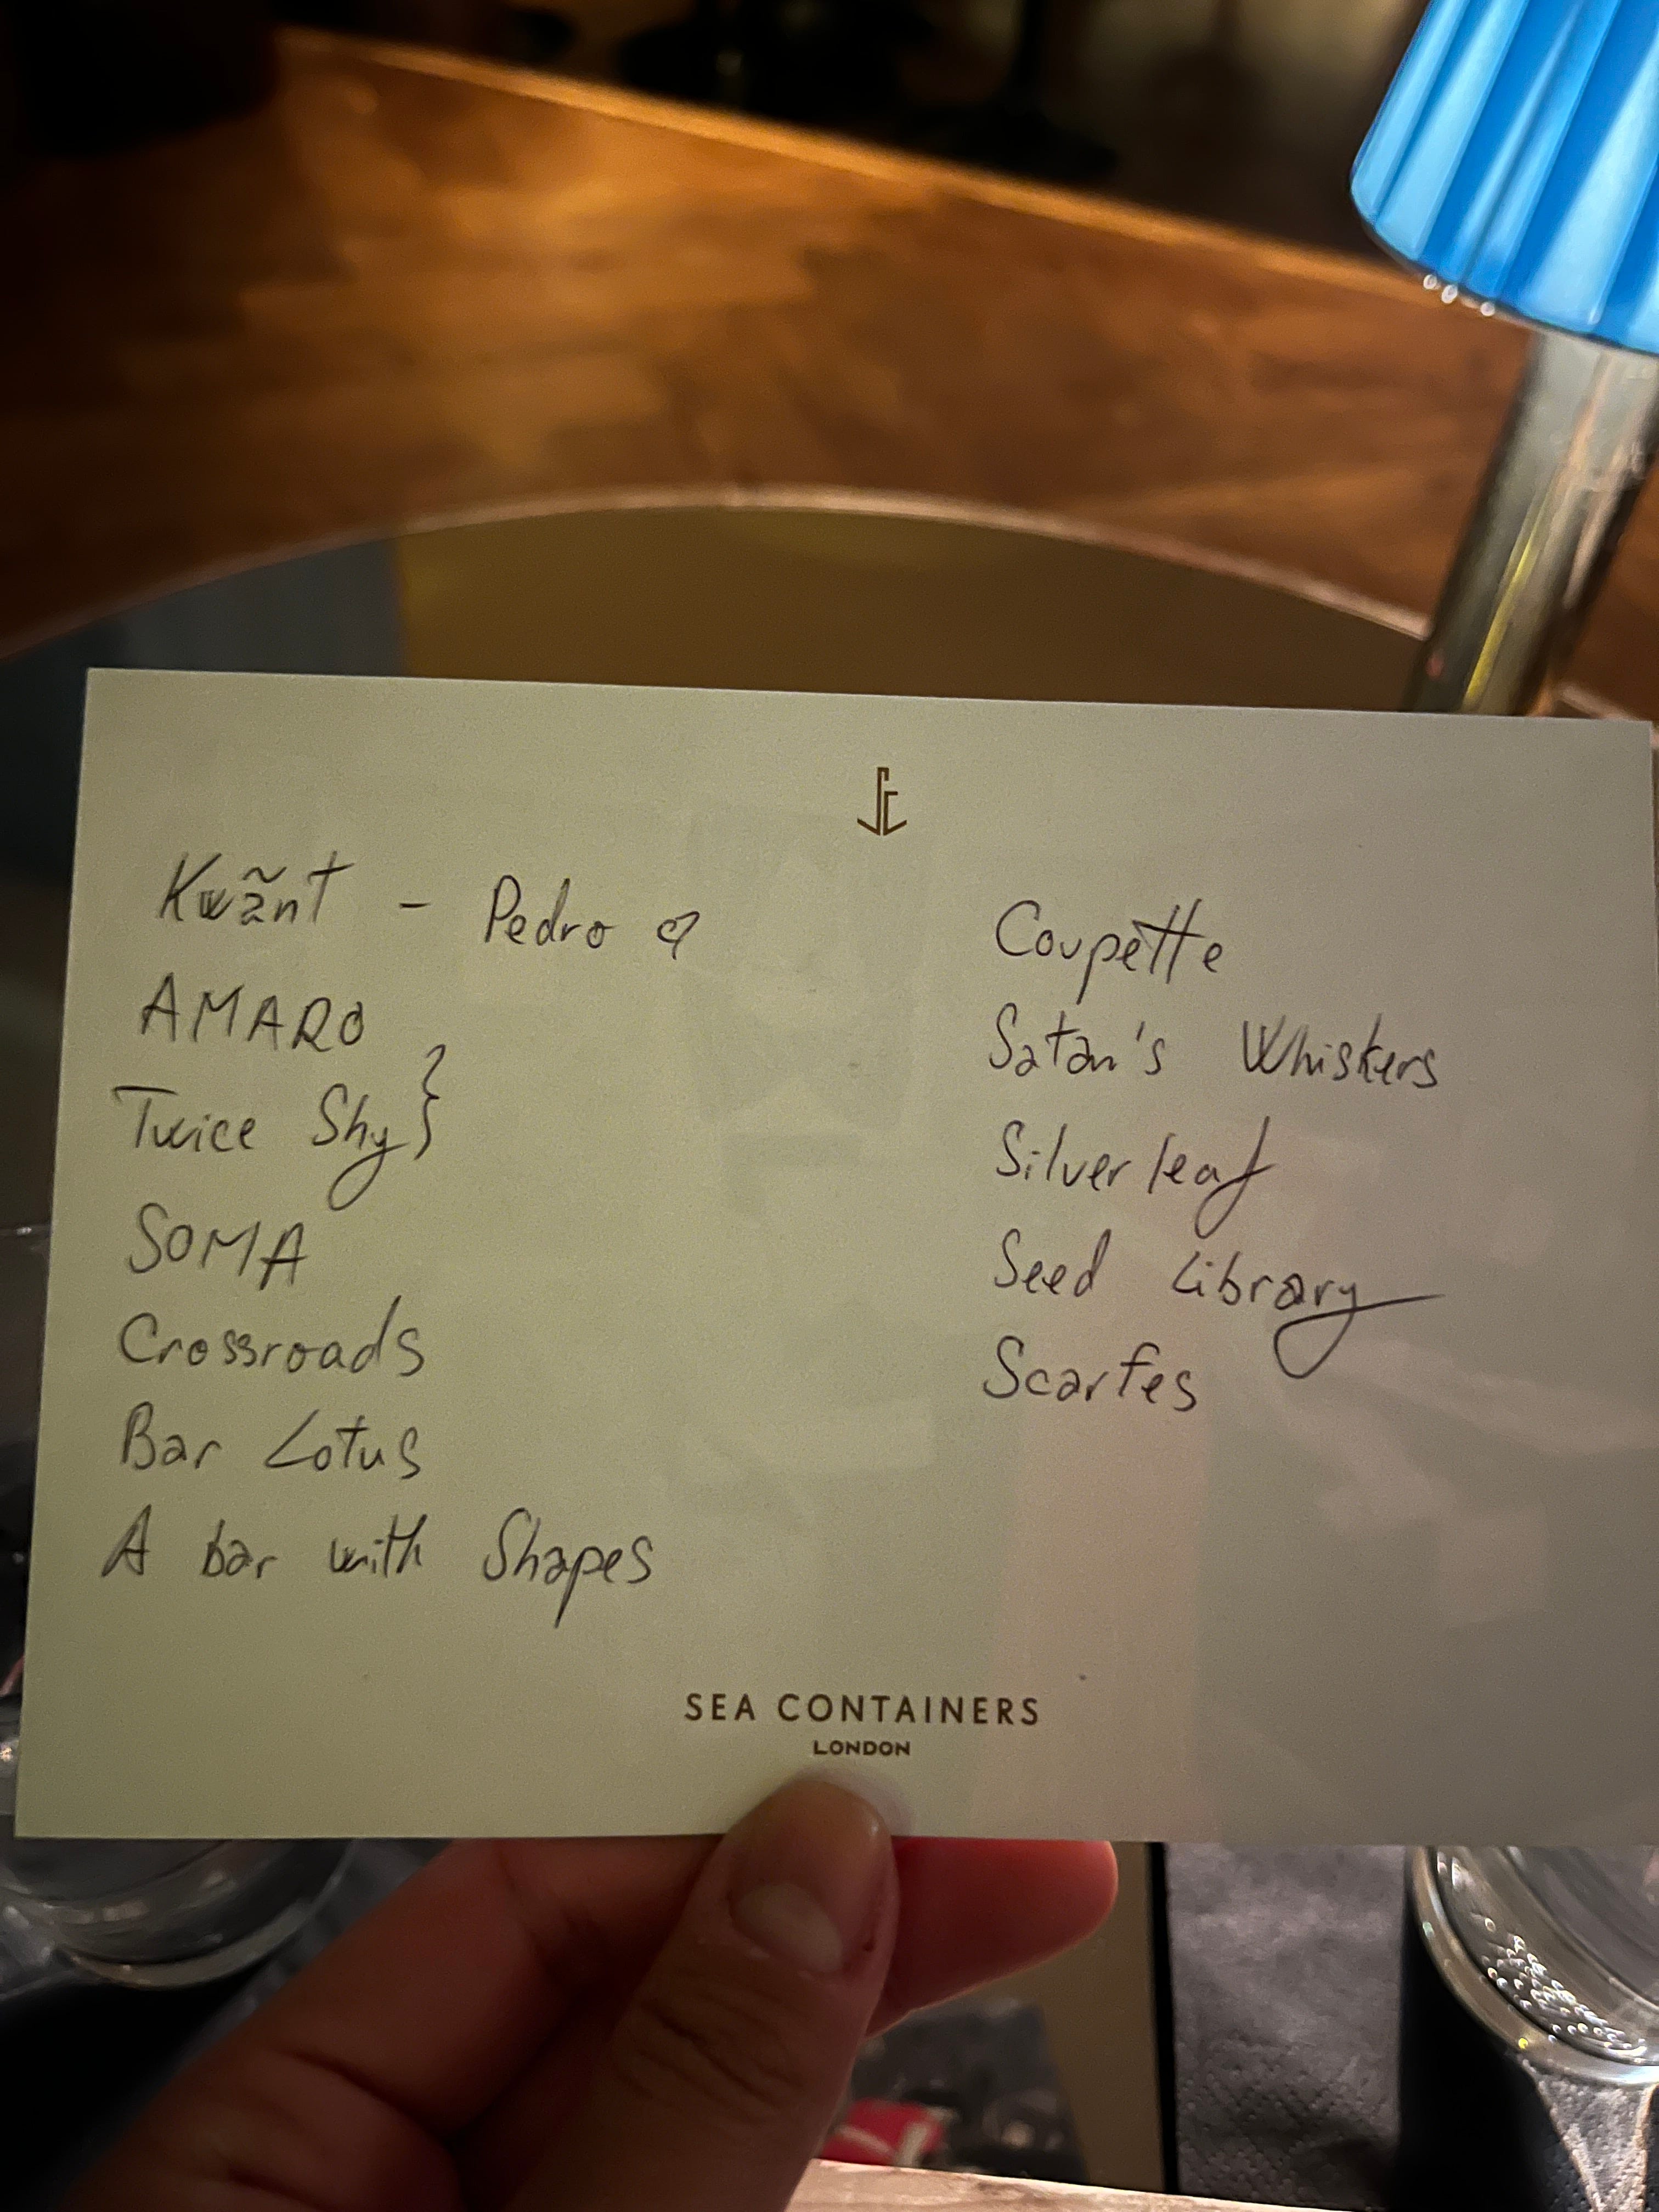 Kwãnt - Pedro ♡
AMARO
Twice Shy }
SOMA
Crossroads
Bar Lotus
A bar with Shapes
Coupette
Satan's Whiskers
Silverleaf
Seed Library
Scarfes
SEA CONTAINERS
LONDON